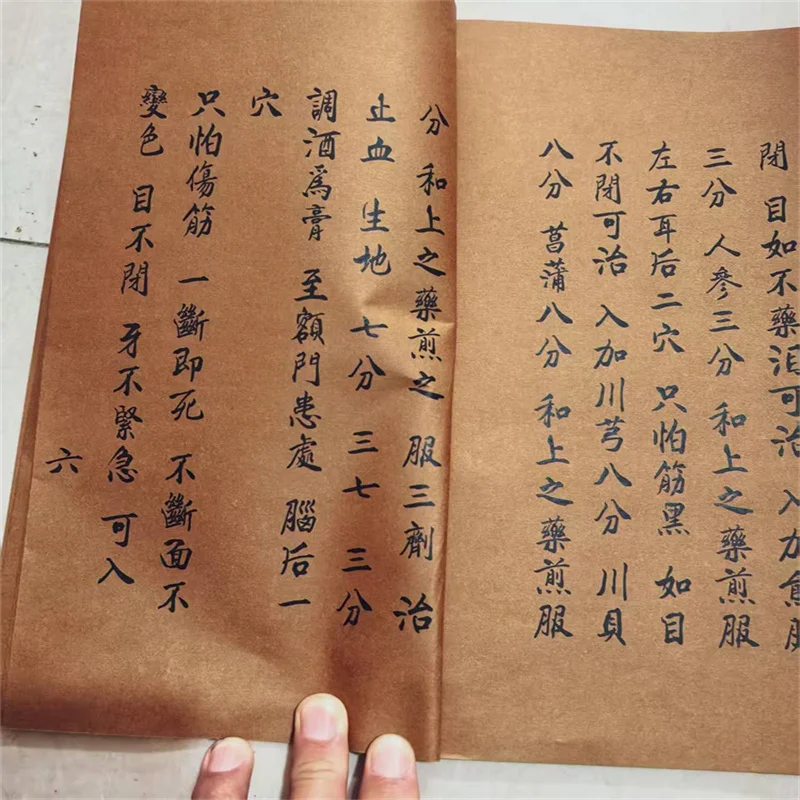 閉 目如不藥泪可治 入加
三分 人參三分 和上之藥煎服
左右耳后二穴 只怕筋黑 如目
不閉可治 入加川芎八分 川貝
八分 菖蒲八分 和上之藥煎服
分 和上之藥煎之 服三劑 治
止血 生地 七分 三七 三分
調酒爲膏 至額門患處 腦后一
穴
只怕傷筋 一斷即死 不斷面不
變色 目不閉 牙不緊急 可入
六